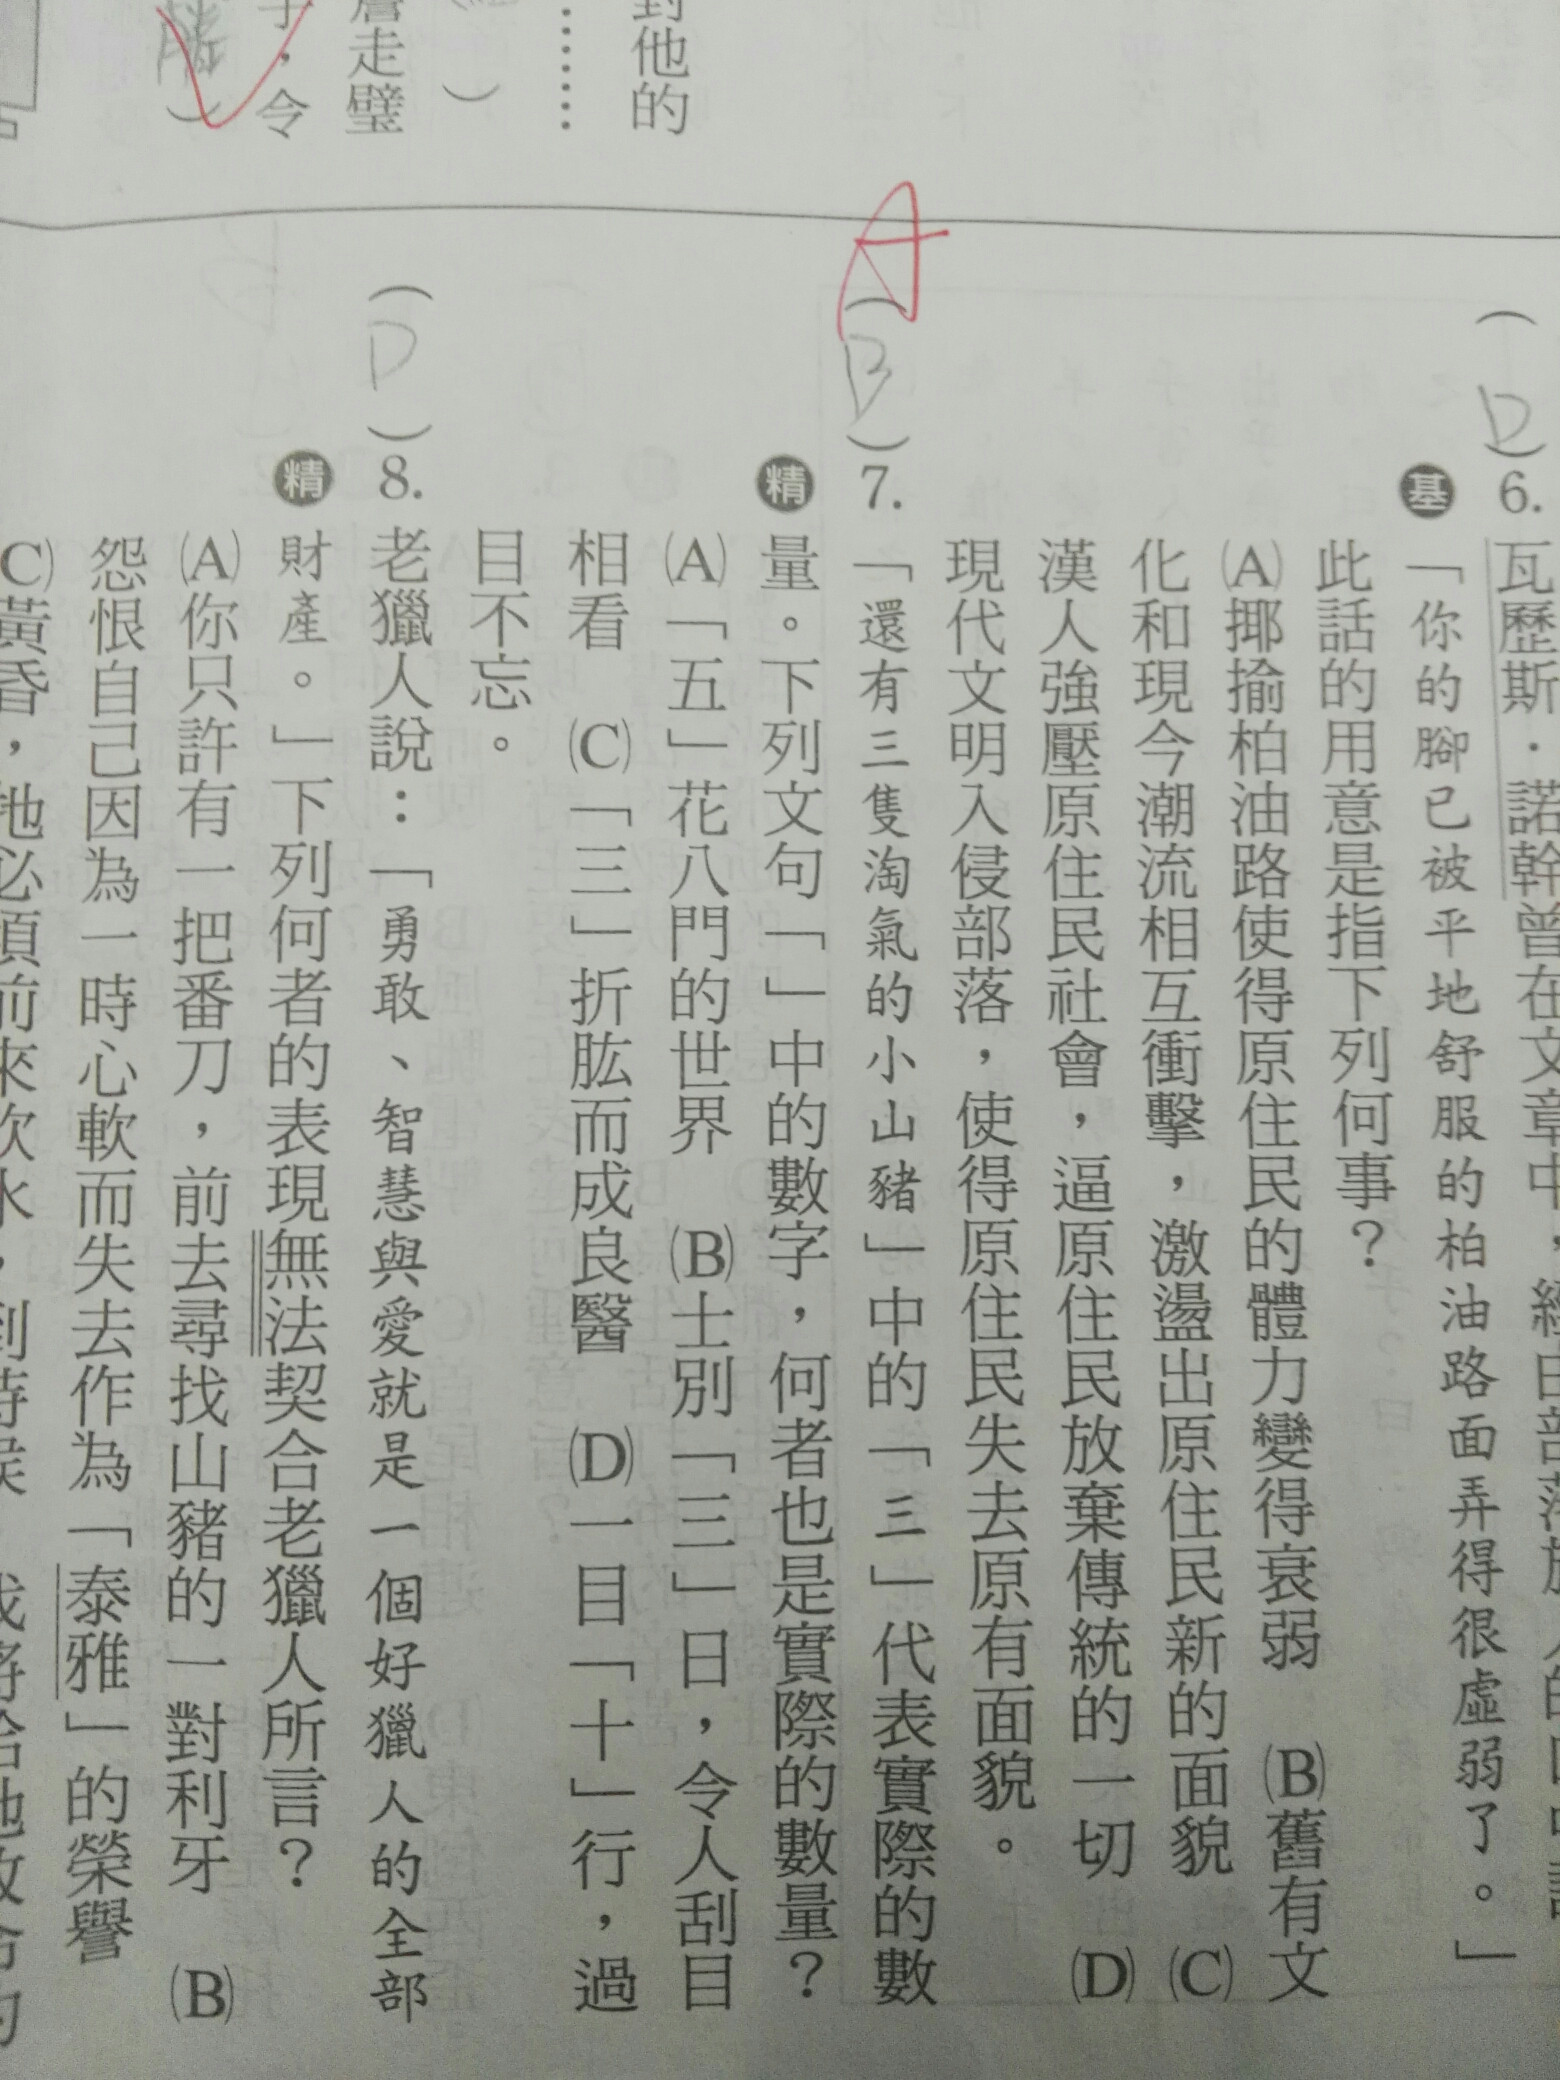 對他的
…………
)
詹走壁
子，令
勝)
(D)6.瓦歷斯．諾幹曾在文章中，經由部落族人的口中說
基「你的腳已被平地舒服的柏油路面弄得很虛弱了。」
此話的用意是指下列何事？
(A)揶揄柏油路使得原住民的體力變得衰弱 (B)舊有文
化和現今潮流相互衝擊，激盪出原住民新的面貌 (C)
漢人強壓原住民社會，逼原住民放棄傳統的一切 (D)
現代文明入侵部落，使得原住民失去原有面貌。
A
(B)7.「還有三隻淘氣的小山豬」中的「三」代表實際的數
精量。下列文句「」中的數字，何者也是實際的數量？
(A)「五」花八門的世界 (B)士別「三」日，令人刮目
相看 (C)「三」折肱而成良醫 (D)一目「十」行，過
目不忘。
(D)8.老獵人說：「勇敢、智慧與愛就是一個好獵人的全部
精財產。」下列何者的表現無法契合老獵人所言？
(A)你只許有一把番刀，前去尋找山豬的一對利牙 (B)
怨恨自己因為一時心軟而失去作為「泰雅」的榮譽
(C)黃昏，牠必須前來飲水，到時候